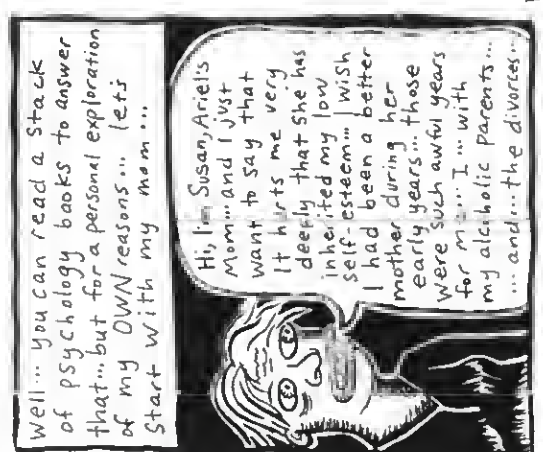 well... you can read a stack
of psychology books to answer
that... but for a personal exploration
of my OWN reasons... let's
start with my mom...
Hi, I'm Susan, Ariel's
Mom... and I just
want to say that
It hurts me very
deeply that she has
inherited my low
self-esteem... I wish
I had been a better
mother during her
early years... those
were such awful years
for me... I... with
my alcoholic parents...
... and... the divorces...